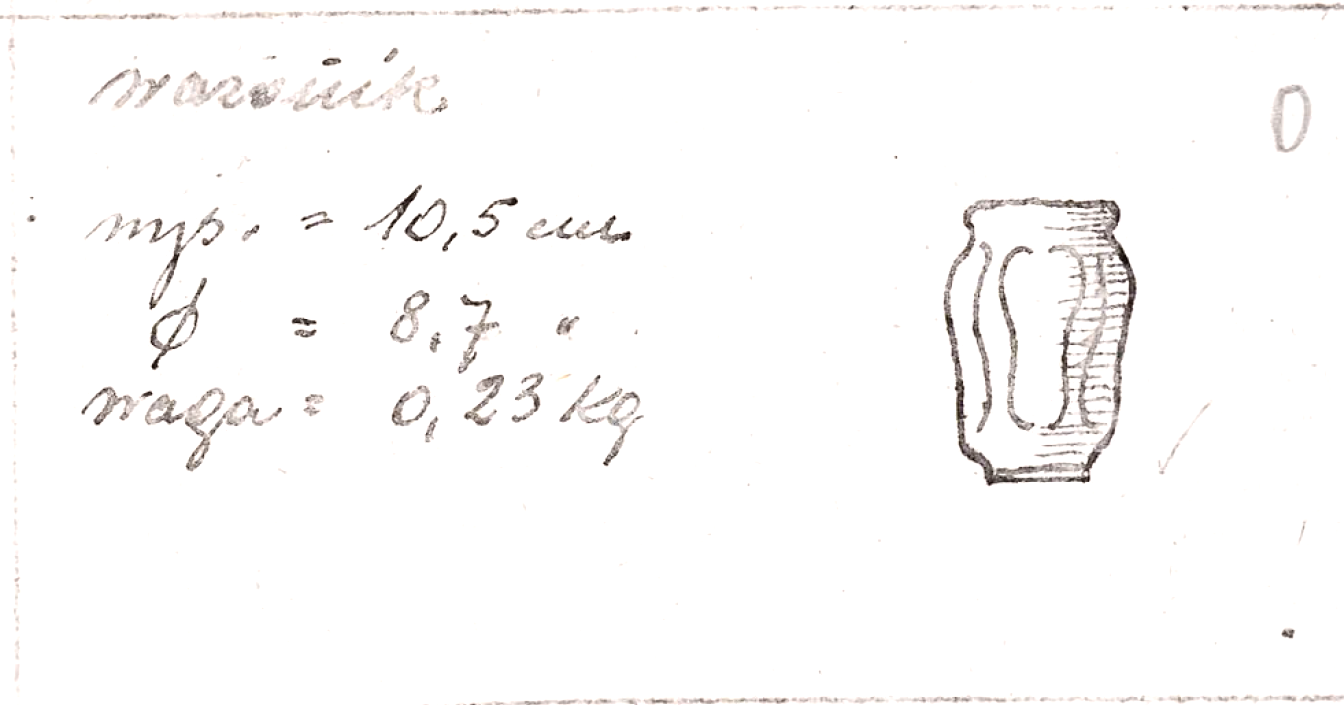 wazonik
0
wys. = 10,5 cm
φ = 8,7 "
waga = 0,23 kg